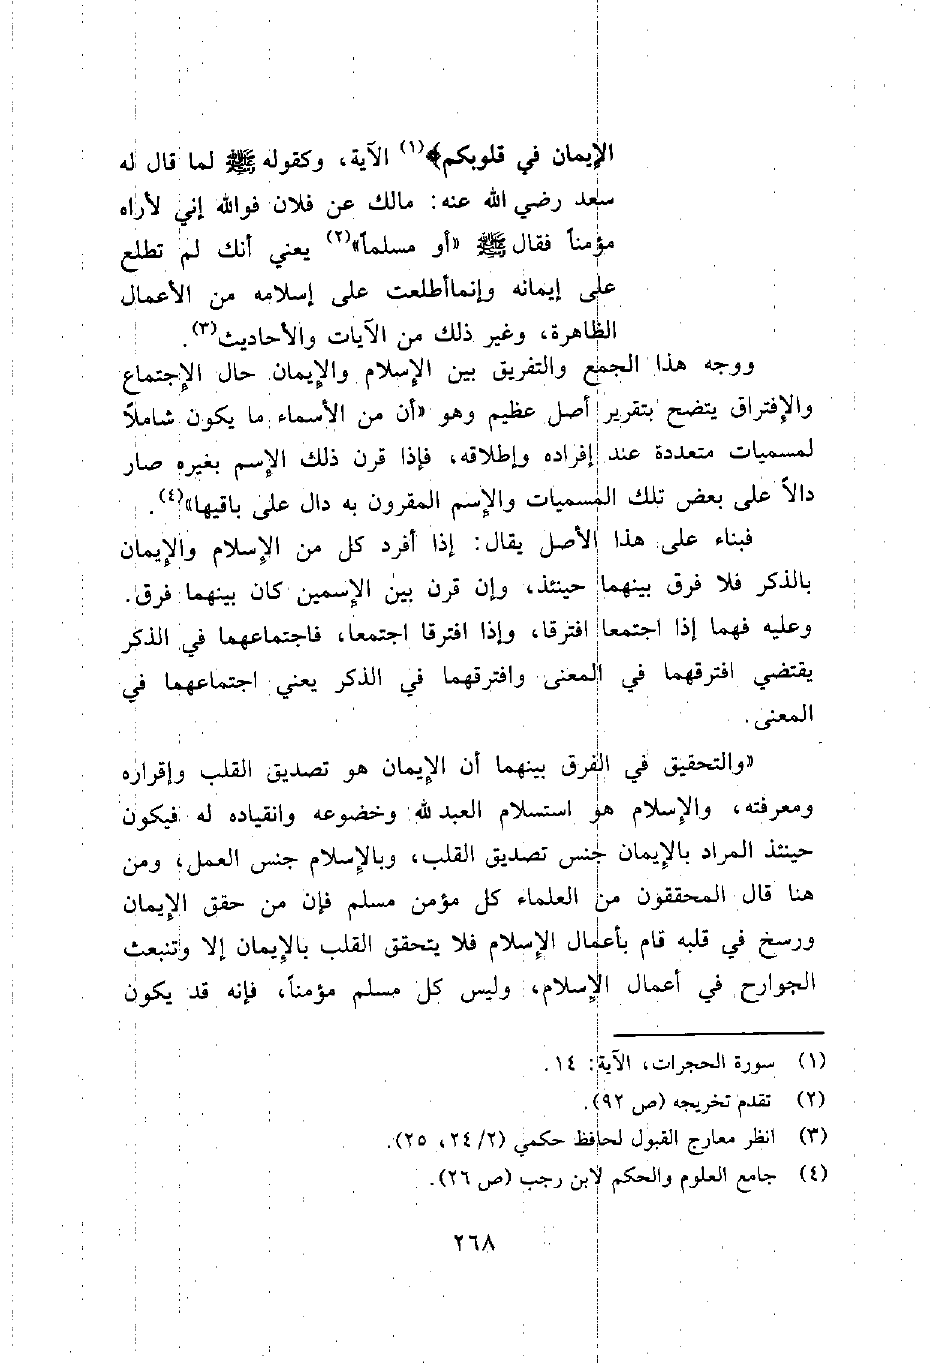 الإيمان في قلوبكم﴾(١) الآية، وكقوله ﷺ لما قال له
سعد رضي الله عنه: مالك عن فلان فوالله إني لأراه
مؤمناً فقال ﷺ «أو مسلماً»(٢) يعني أنك لم تطلع
على إيمانه وإنماأطلعت على إسلامه من الأعمال
الظاهرة، وغير ذلك من الآيات والأحاديث(٣).
ووجه هذا الجمع والتفريق بين الإسلام والإيمان حال الإجتماع
والإفتراق يتضح بتقرير أصل عظيم وهو «أن من الأسماء ما يكون شاملاً
لمسميات متعددة عند إفراده وإطلاقه، فإذا قرن ذلك الإسم بغيره صار
دالاً على بعض تلك المسميات والإسم المقرون به دال على باقيها»(٤).
فبناء على هذا الأصل يقال: إذا أفرد كل من الإسلام والإيمان
بالذكر فلا فرق بينهما حينئذ، وإن قرن بين الإسمين كان بينهما فرق.
وعليه فهما إذا اجتمعا افترقا، وإذا افترقا اجتمعا، فاجتماعهما في الذكر
يقتضي افترقهما في المعنى وافترقهما في الذكر يعني اجتماعهما في
المعنى.
«والتحقيق في الفرق بينهما أن الإيمان هو تصديق القلب وإقراره
ومعرفته، والإسلام هو استسلام العبد لله وخضوعه وانقياده له فيكون
حينئذ المراد بالإيمان جنس تصديق القلب، وبالإسلام جنس العمل، ومن
هنا قال المحققون من العلماء كل مؤمن مسلم فإن من حقق الإيمان
ورسخ في قلبه قام بأعمال الإسلام فلا يتحقق القلب بالإيمان إلا وتنبعث
الجوارح في أعمال الإسلام، وليس كل مسلم مؤمناً، فإنه قد يكون
(١) سورة الحجرات، الآية: ١٤.
(٢) تقدم تخريجه (ص ٩٢).
(٣) انظر معارج القبول لحافظ حكمي (٢/ ٢٤، ٢٥).
(٤) جامع العلوم والحكم لابن رجب (ص ٢٦).
٢٦٨